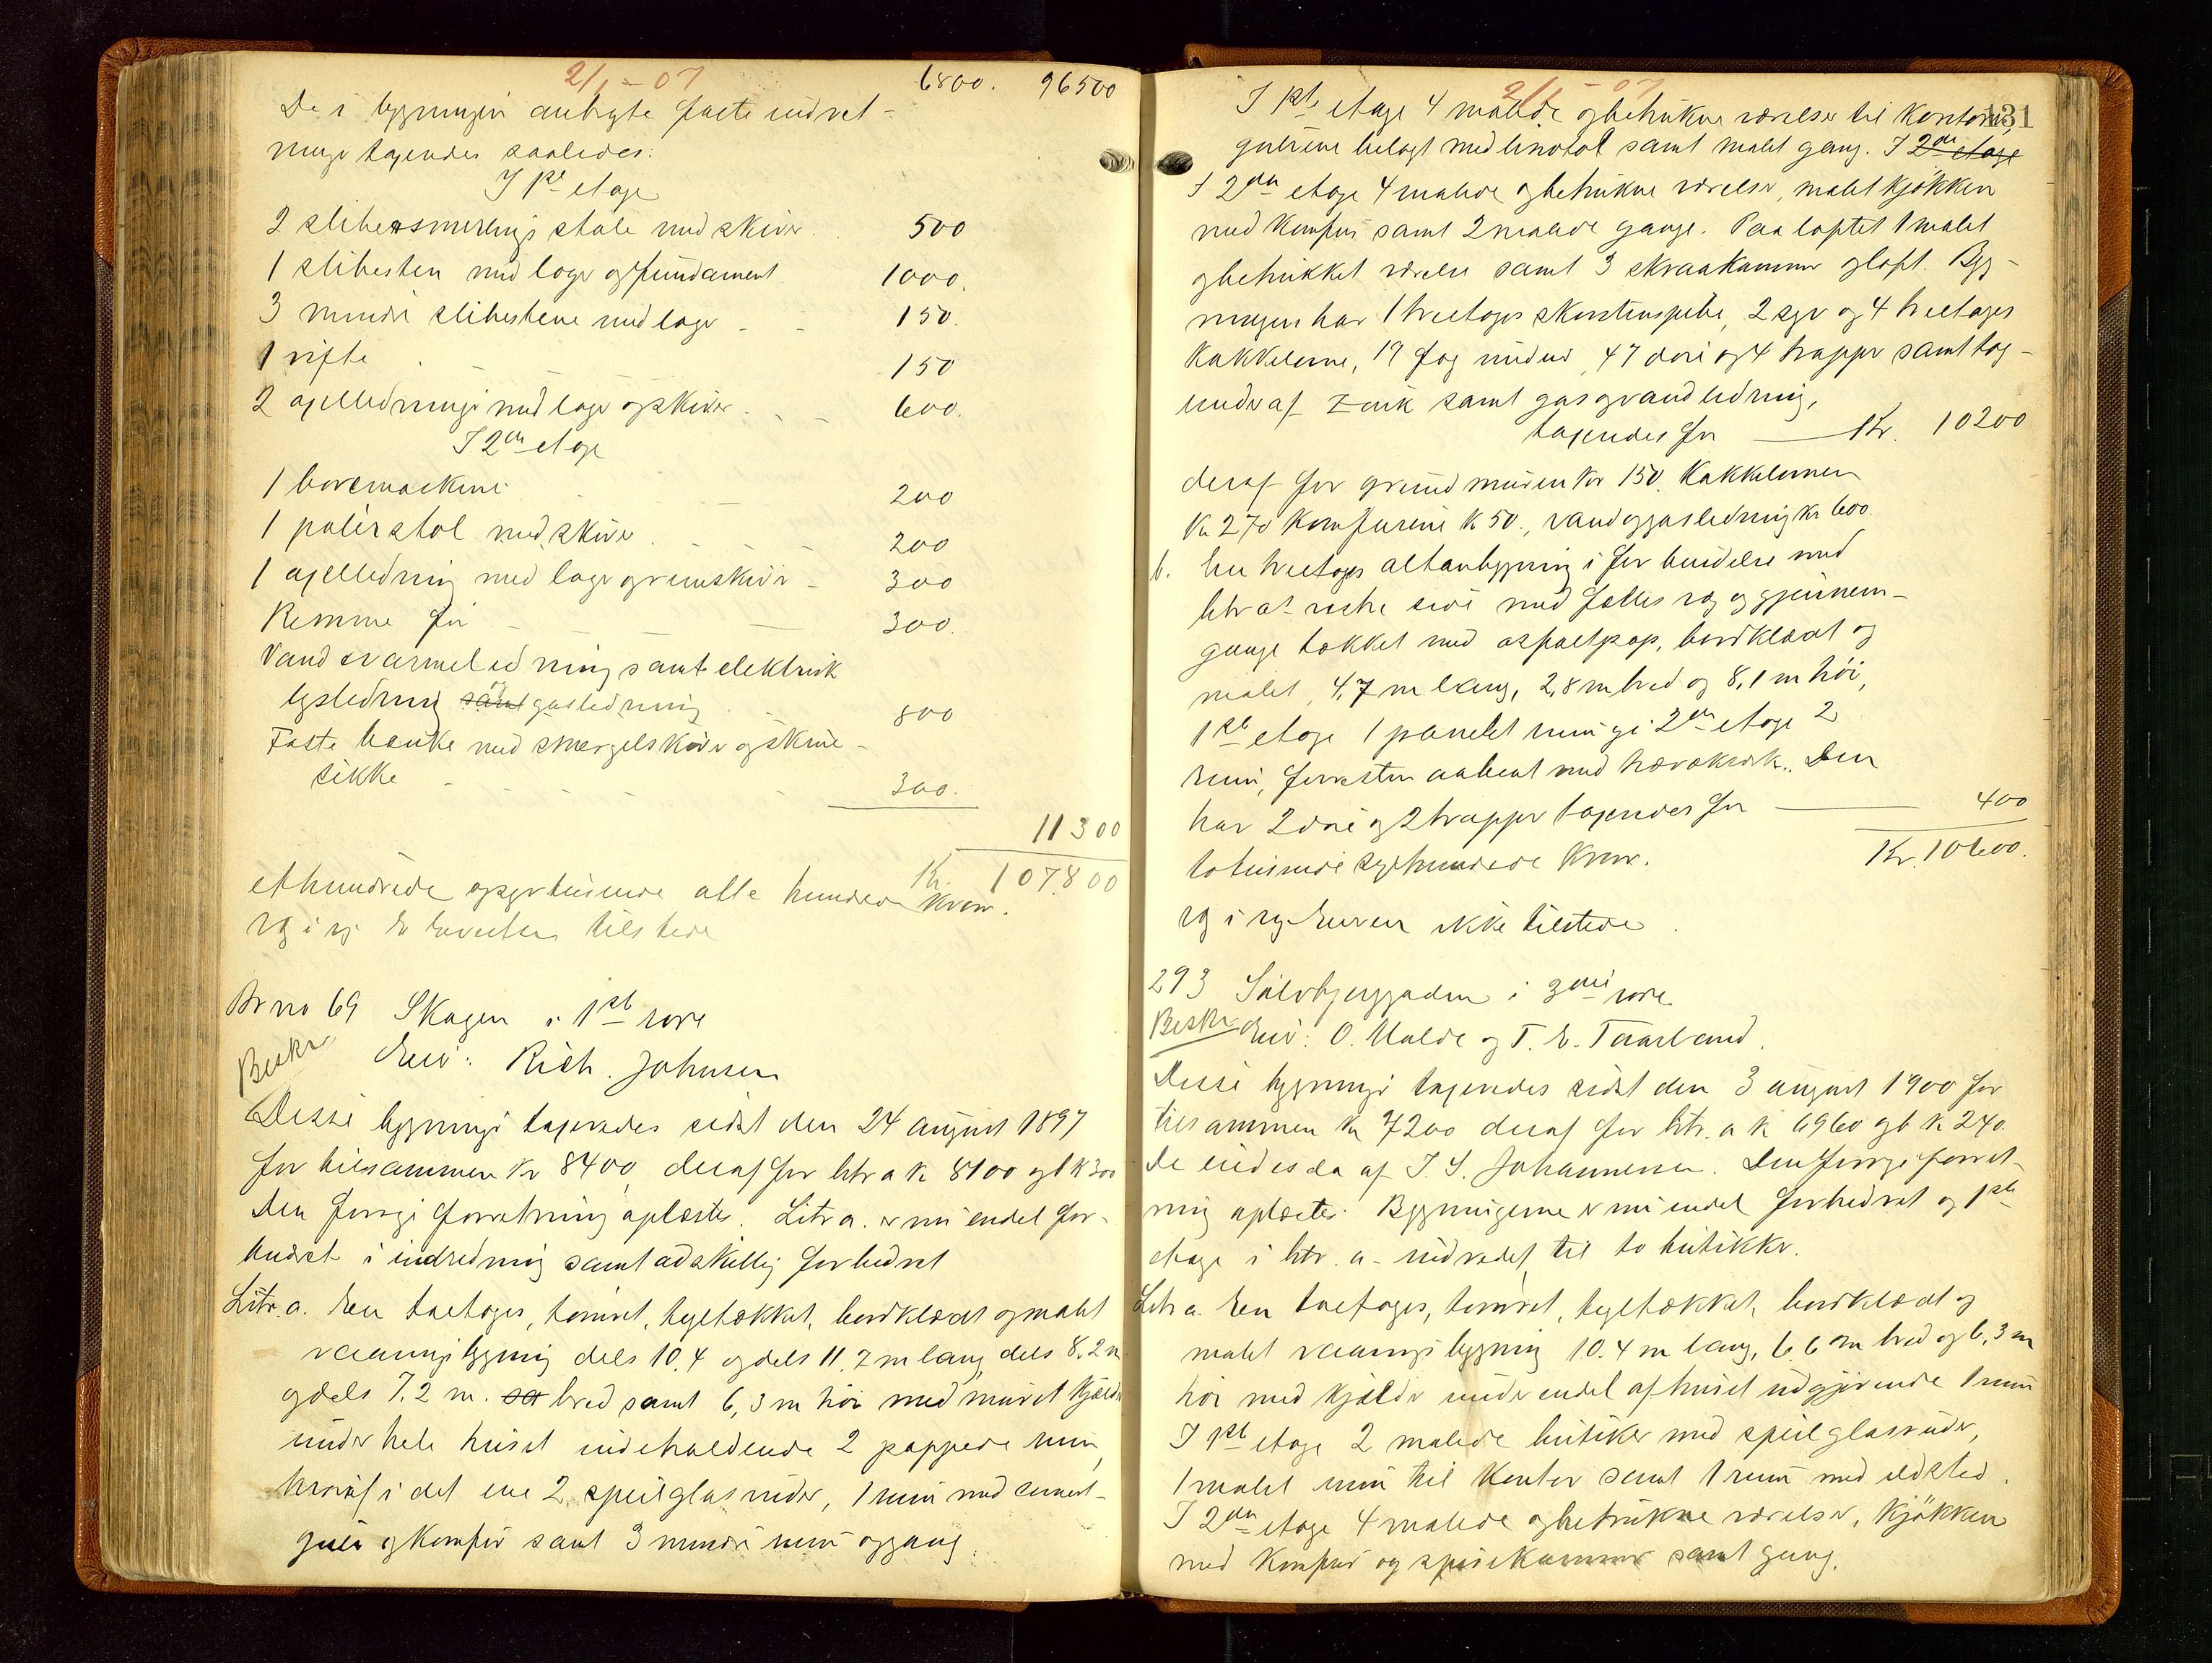 2/1 - 07
6800. 96500
De i bygningen anbragte faste indret-
ninger taxeredes saaledes:
I 1ste etage
2 slibersmerlings stole med skiver 500
1 slibesten med lager og fundament 1000.
3 mindre slibestene med lager 150.
1 vifte 150
2 axelledninger med lager og skiver 600.
I 2den etage
1 boremaskine 200
1 polérstol med skiver 200
1 axelledning med lager og remskiver 300
Remme for 300.
Vand & varmeledning samt elektrisk
lysledning samt og gasledning 800
Faste bænke med smergelskiver og skrue-
stikke 300.
11300
Kr. 107.800
ethundrede og syvtusinde otte hundrede kroner.
rg i rg Er tilstede
Br no 69 Skagen i 1ste rode
Beskr Eier: Rich. Johnsen
Disse bygninger taxeredes sidst den 24 august 1897
for tilsammen Kr 8400, deraf for litr a kr 8100 og b k 300
Den forrige forretning oplæstes. Litr a. er nu endel for-
andret i indredning samt adskillig forbedret
Litr. a. Een toetages, tømret, tegltækket, bordklædt og malet
vaaningsbygning dels 10.4 og dels 11.7 m lang dels 8.2 m
og dels 7.2 m. sa bred samt 6,3 m høi med muret kjælder
under hele huset indeholdende 2 pappede rum,
hvoraf i det ene 2 speilglasruder, 1 rum med cement-
gulv og komfur samt 3 mindre rum og gang.
2/1 - 07
131
I 1ste etage 4 malede og betrukne værelser til kontorer,
gulvene belagt med linotol samt malet gang. I 2den etage
I 2den etage 4 malede og betrukne værelser, malet kjøkken
med komfur samt 2 malede gange. Paa loftet 1 malet
og betrukket værelse samt 3 skraakammer og loft. Byg-
ningen har 1 treetages skorstenspibe, 2 og 4 treetages
kakkelovne, 19 fag vinduer, 47 døre og 4 trapper samt tag-
render af zink samt gas og vandledning,
taxeredes for Kr. 10200
deraf for grundmuren kr 150. Kakkelovnen
Kr 270 Komfurene K 50., vand og gasledning kr 600.
b. Een treetages altanbygning i forbindelse med
litr a's vestre side med fælles væg og gjennem-
gange tækket med asfaltpap, bordklædt og
malet, 4,7 m lang, 2,8 m bred og 8,1 m høi,
1ste etage 1 panelet rum og i 2den etage 2
rum, forresten aabent med Den
har 2 døre og 2 trapper taxeredes for 400
Kr. 10600.
totusinde sexhundrede kroner.
rg i rg Eieren ikke tilstede.
293 Sølvbjerggaden i 3die rode
Beskr Eier: O. Malde og T. E. Taarland.
Disse bygninger taxeredes sidst den 3 august 1900 for
tilsammen kr 7200 deraf for litr. a k 6960 og b k 240.
De eiedes da af I. S. Johannesen. Den forrige forret-
ning oplæstes. Bygningerne er nu endel forbedret og 1ste
etage i litr. a - indredet til to butikker.
Litr a. Een toetages, tømret, tegltækket, bordklædt og
malet vaaningsbygning 10.4 m lang, 6.6 m bred og 6,3 m
høi med kjælder under endel af huset udgjørende 1 rum
I 1ste etage 2 malede butiker med speilglasruder,
1 malet rum til kontor samt 1 rum med ildsted.
I 2den etage 4 malede og betrukne værelser, kjøkken
med komfur og spisekammer samt gang.